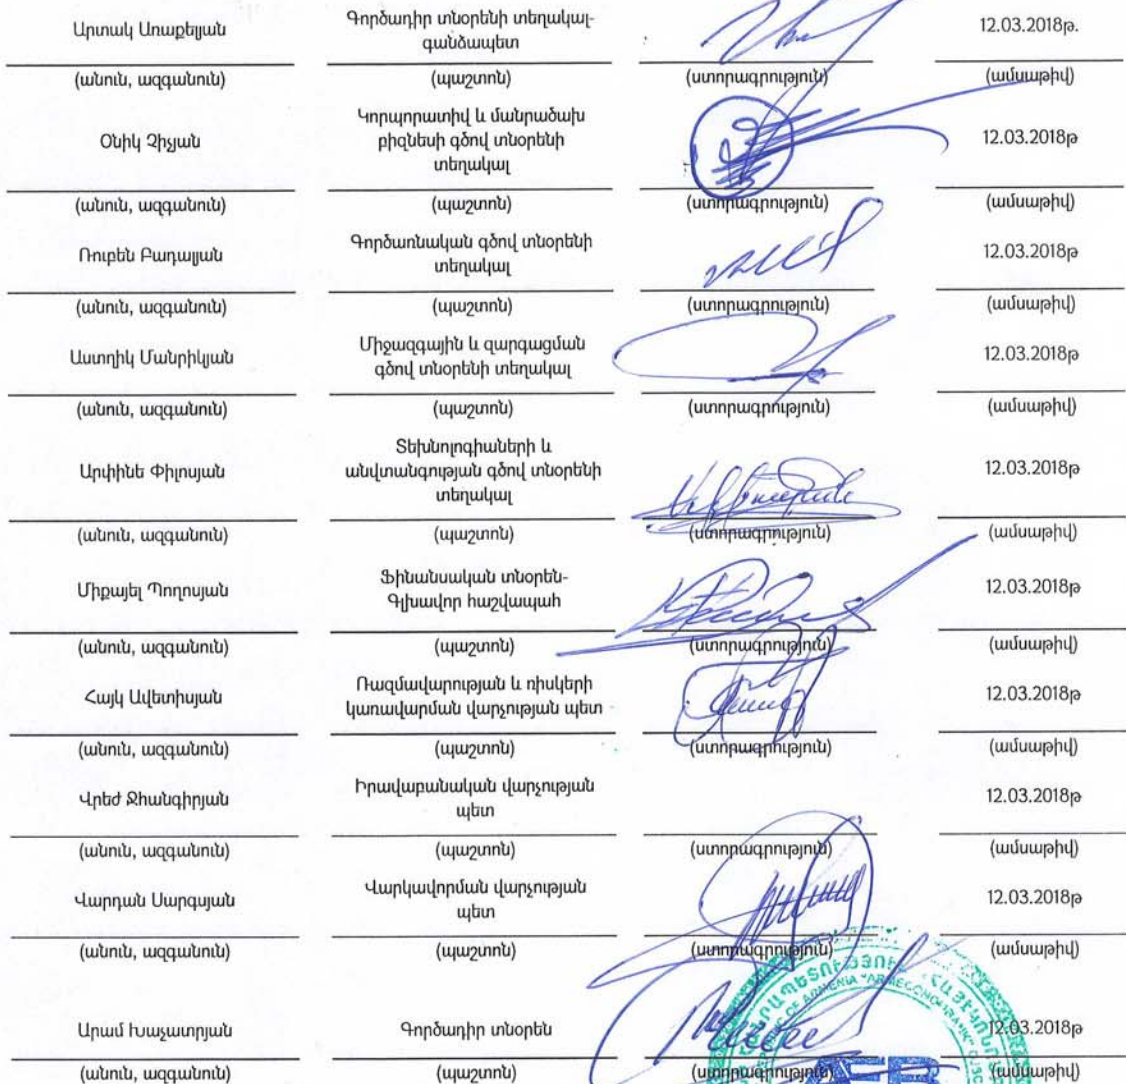 Արտակ Առաքելյան
Գործադիր տնօրենի տեղակալ-
գանձապետ
12.03.2018թ.
(անուն, ազգանուն) (պաշտոն) (ստորագրություն) (ամսաթիվ)
Օնիկ Չիչյան
Կորպորատիվ և մանրածախ
բիզնեսի գծով տնօրենի
տեղակալ
12.03.2018թ
(անուն, ազգանուն) (պաշտոն) (ստորագրություն) (ամսաթիվ)
Ռուբեն Բադալյան
Գործառնական գծով տնօրենի
տեղակալ
12.03.2018թ
(անուն, ազգանուն) (պաշտոն) (ստորագրություն) (ամսաթիվ)
Աստղիկ Մանրիկյան
Միջազգային և զարգացման
գծով տնօրենի տեղակալ
12.03.2018թ
(անուն, ազգանուն) (պաշտոն) (ստորագրություն) (ամսաթիվ)
Արփինե Փիլոսյան
Տեխնոլոգիաների և
անվտանգության գծով տնօրենի
տեղակալ
12.03.2018թ
(անուն, ազգանուն) (պաշտոն) (ստորագրություն) (ամսաթիվ)
Միքայել Պողոսյան
Ֆինանսական տնօրեն-
Գլխավոր հաշվապահ
12.03.2018թ
(անուն, ազգանուն) (պաշտոն) (ստորագրություն) (ամսաթիվ)
Հայկ Ավետիսյան
Ռազմավարության և ռիսկերի
կառավարման վարչության պետ
12.03.2018թ
(անուն, ազգանուն) (պաշտոն) (ստորագրություն) (ամսաթիվ)
Վրեժ Ջհանգիրյան
Իրավաբանական վարչության
պետ
12.03.2018թ
(անուն, ազգանուն) (պաշտոն) (ստորագրություն) (ամսաթիվ)
Վարդան Սարգսյան
Վարկավորման վարչության
պետ
12.03.2018թ
(անուն, ազգանուն) (պաշտոն) (ստորագրություն) (ամսաթիվ)
Արամ Խաչատրյան
Գործադիր տնօրեն
12.03.2018թ
(անուն, ազգանուն) (պաշտոն) (ստորագրություն) (ամսաթիվ)
OF ARMENIA
AEB